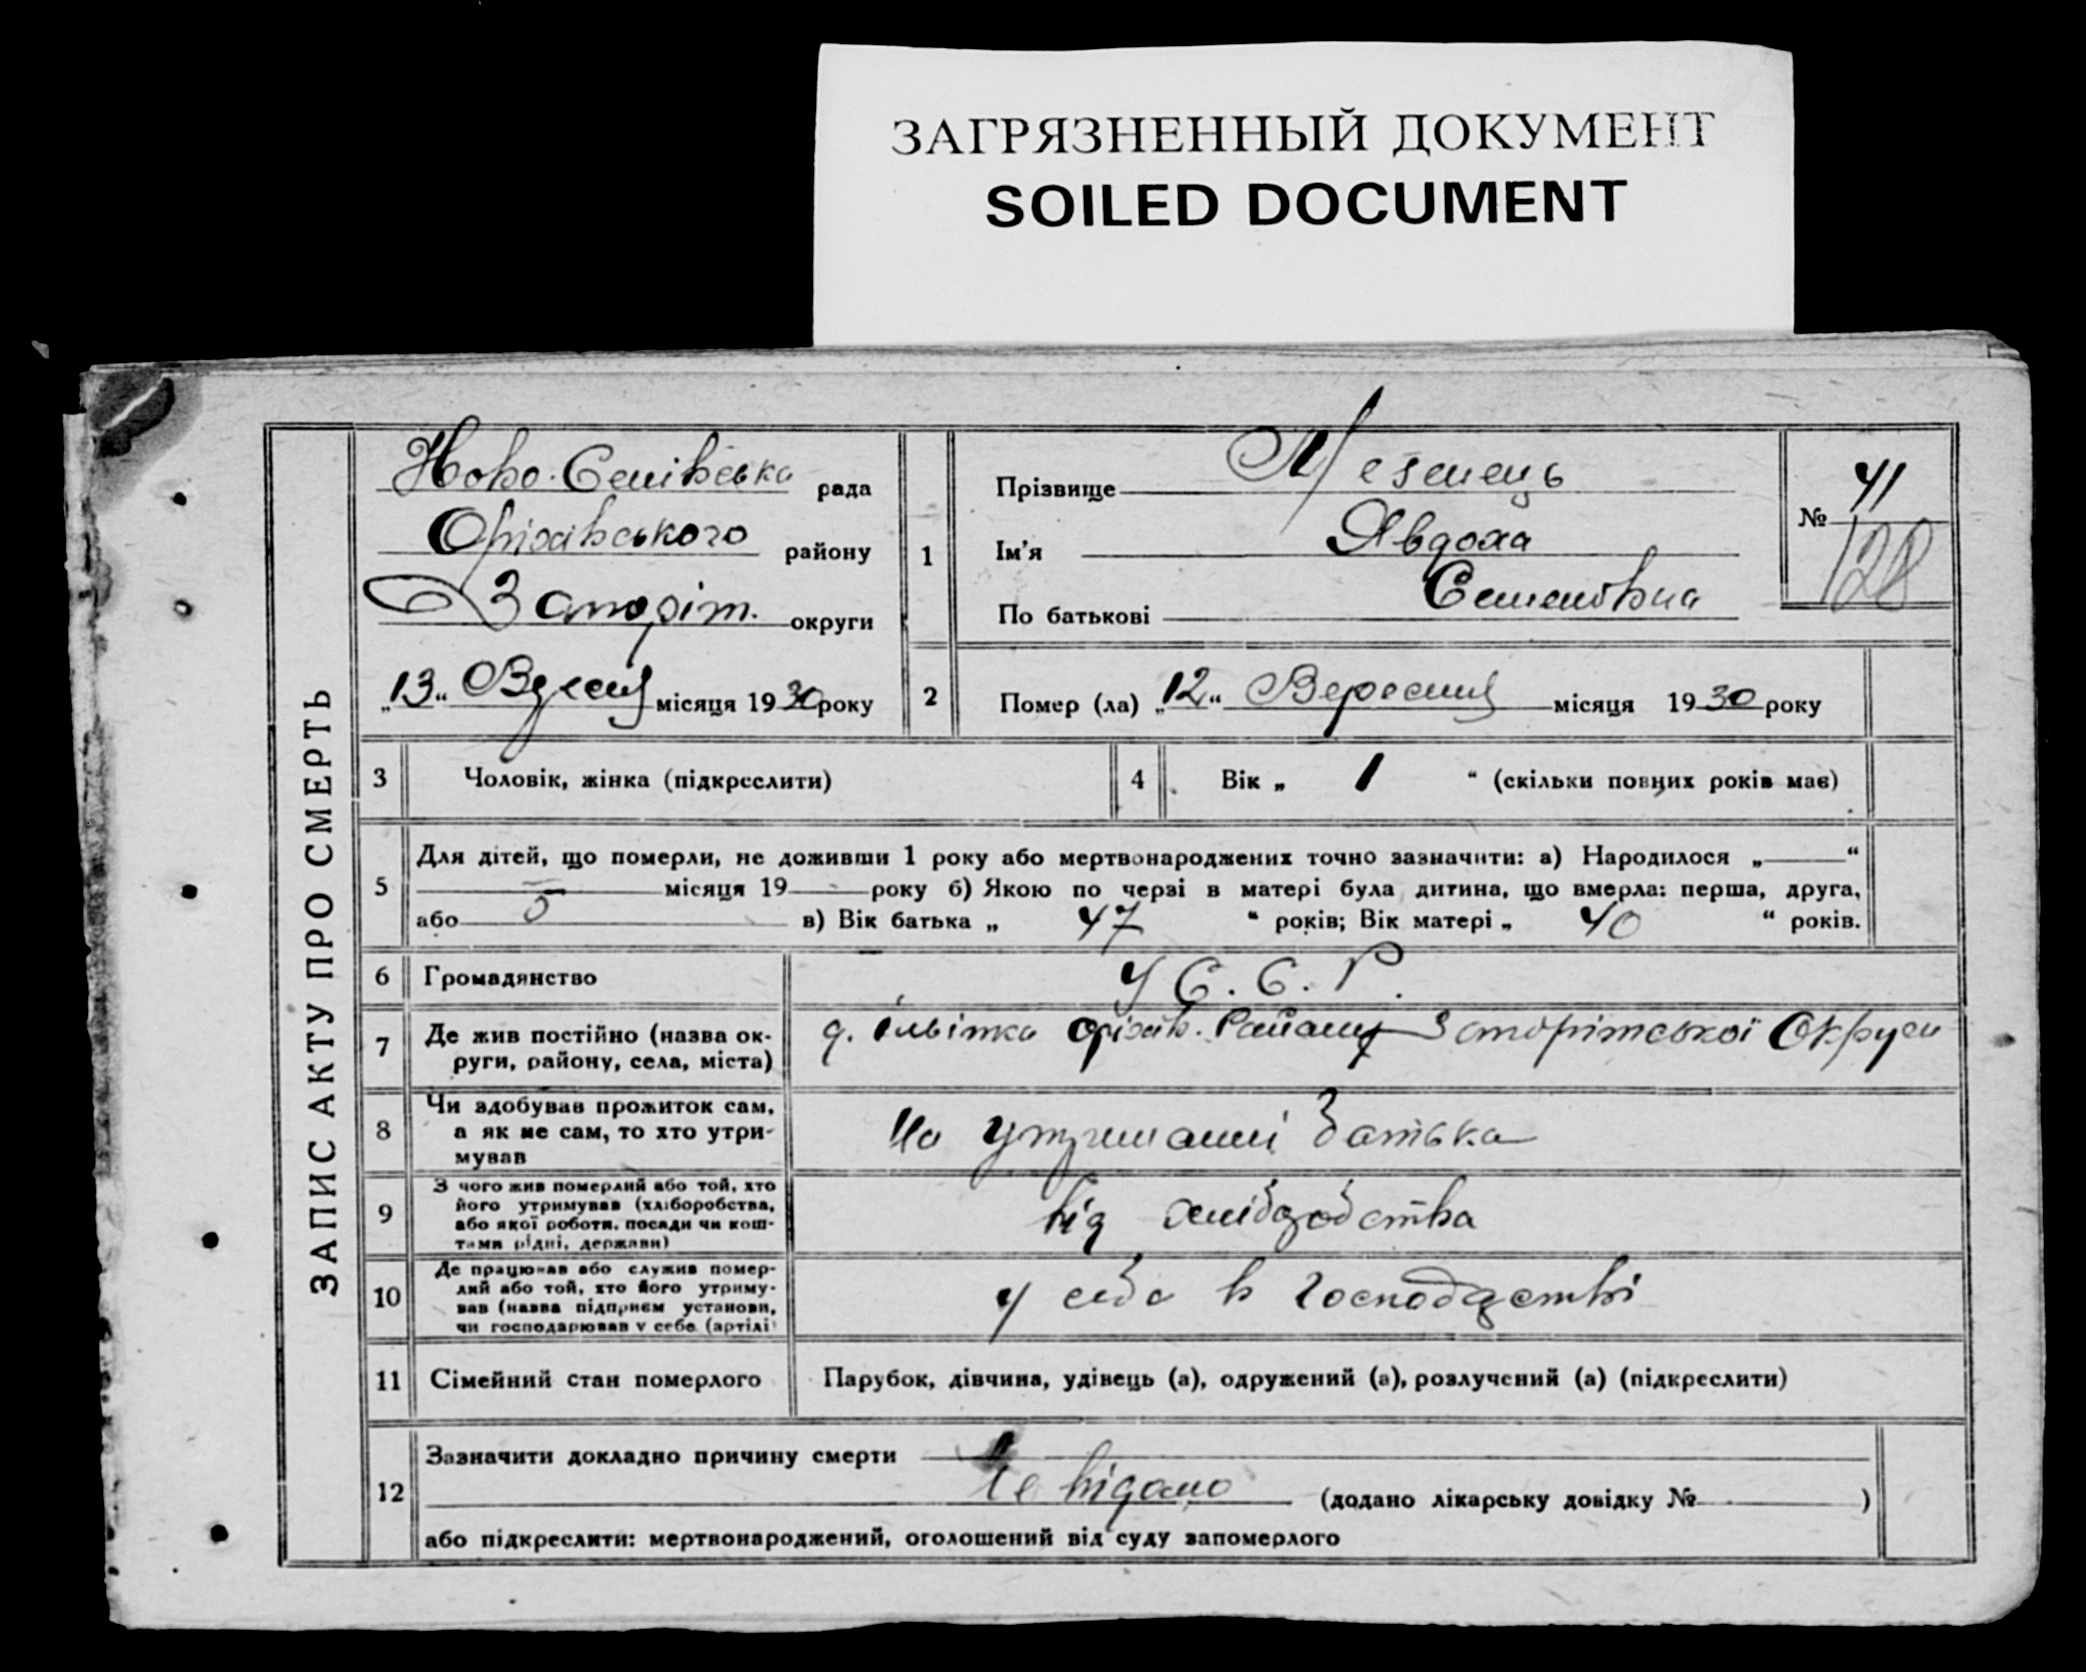 ЗАГРЯЗНЕННЫЙ ДОКУМЕНТ
SOILED DOCUMENT
ЗАПИС АКТУ ПРО СМЕРТЬ
рада
Оріхівського району
Запоріт. округи
„13“ місяця 1930 року
1
Прізвище Мезенець
Ім'я Явдоха
По батькові Семенівна
№ 41
128
2 Помер (ла) „12“ Вересня місяця 1930 року
3 Чоловік, жінка (підкреслити)
4 Вік „ 1 “ (скільки повних років має)
5 Для дітей, що померли, не доживши 1 року або мертвонароджених точно зазначити: а) Народилося „ “
місяця 19 року б) Якою по черзі в матері була дитина, що вмерла: перша, друга,
або 5 в) Вік батька „ 47 “ років; Вік матері „ 40 “ років.
6 Громадянство У С. С. Р.
7 Де жив постійно (назва ок-
руги, району, села, міста)
Оріхів. Району Запорітської Округи
8 Чи здобував прожиток сам,
а як не сам, то хто утри-
мував
На утриманні батька
9 З чого жив померлий або той, хто
його утримував (хліборобства,
або якої роботи, посади чи кош-
тами рідні, держави)
від хліборобства
10 Де працював або служив помер-
лий або той, хто його утриму-
вав (назва підприєм установи,
чи господарював у себе (артілі)
у себе в господарстві
11 Сімейний стан померлого Парубок, дівчина, удівець (а), одружений (а), розлучений (а) (підкреслити)
12 Зазначити докладно причину смерти
Не відомо (додано лікарську довідку № )
або підкреслити: мертвонароджений, оголошений від суду запомерлого